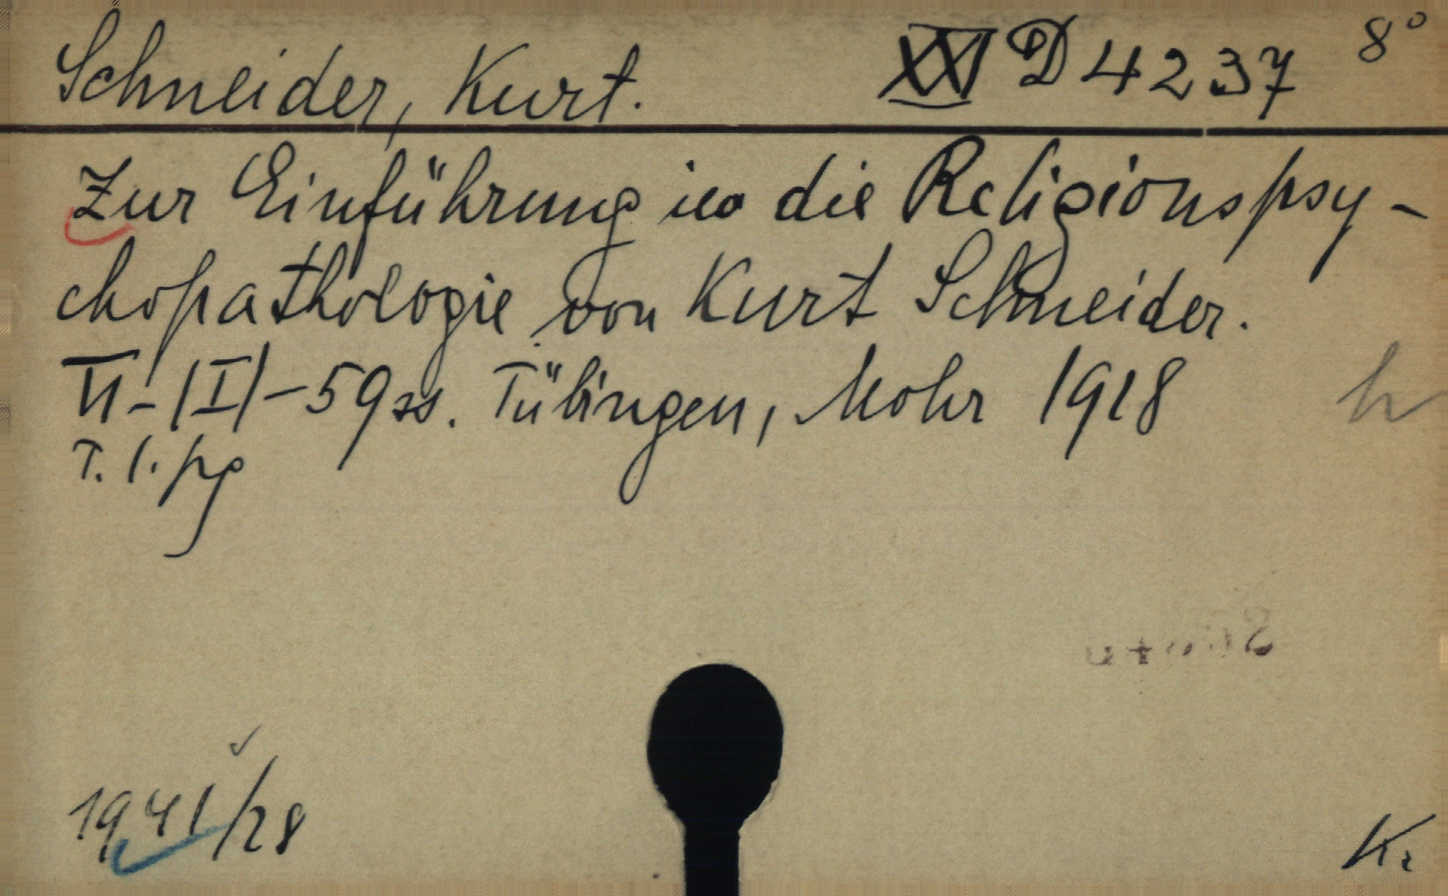 Schneider, Kurt. XXI D 4237 8°
Zur Einführung in die Religionspsy-
chopathologie von Kurt Schneider.
VI-(I)-59 ss. Tübingen, Mohr 1918
T. l. pg
1941/28